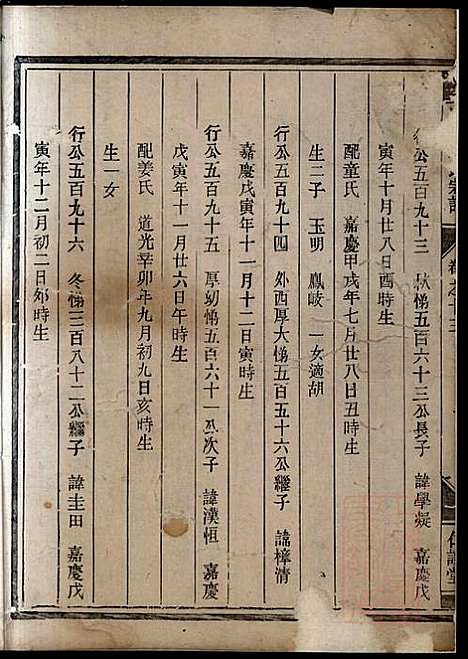 宗譜
卷之十三
行公五百九十三 悌五百六十三公長子 諱學凝 嘉慶戊
寅年十月廿八日酉時生
配童氏 嘉慶甲戌年七月廿八日丑時生
生二子 玉明 鳳岐 一女適胡
行公五百九十四 外西厚大悌五百五十六公繼子 諱樟清
嘉慶戊寅年十一月十二日寅時生
行公五百九十五 厚劒悌五百六十一公次子 諱漢恒 嘉慶
戊寅年十一月廿六日午時生
配姜氏 道光辛卯年九月初九日亥時生
生一女
行公五百九十六 冬悌三百八十二公繼子 諱圭田 嘉慶戊
寅年十二月初二日卯時生